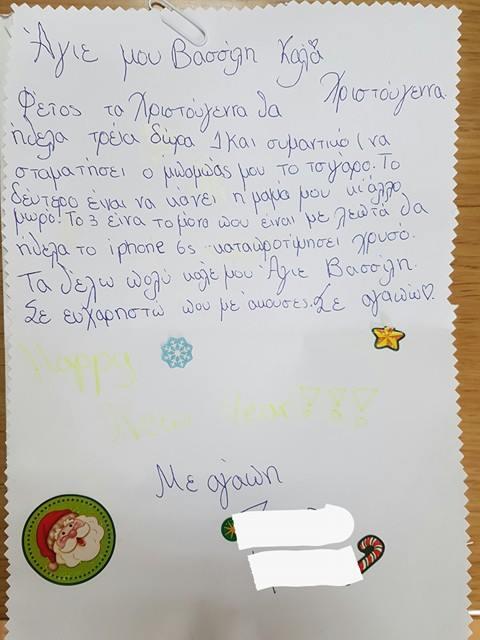 Άγιε μου Βασσίλη Καλά
Χριστούγεννα.
Φέτος τα Χριστούγεννα θα
ήθελα τρεία δώρα 1 Και συμαντικό (να
σταματήσει ο μπαμπάς μου το τσιγάρο. Το
δεύτερο είναι να κάνει η μαμά μου κι άλλο
μωρό. Το 3 είνα το μόνο που είναι με λεπτά θα
ήθελα το iphone 6s καταπροτίμησει χρυσό.
Τα θέλω πολύ καλέ μου Άγιε Βασσίλη.
Σε ευχαρηστώ που με άκουσες. Σε αγαπώ♡.
Happy
New Year!!!
Με αγάπη